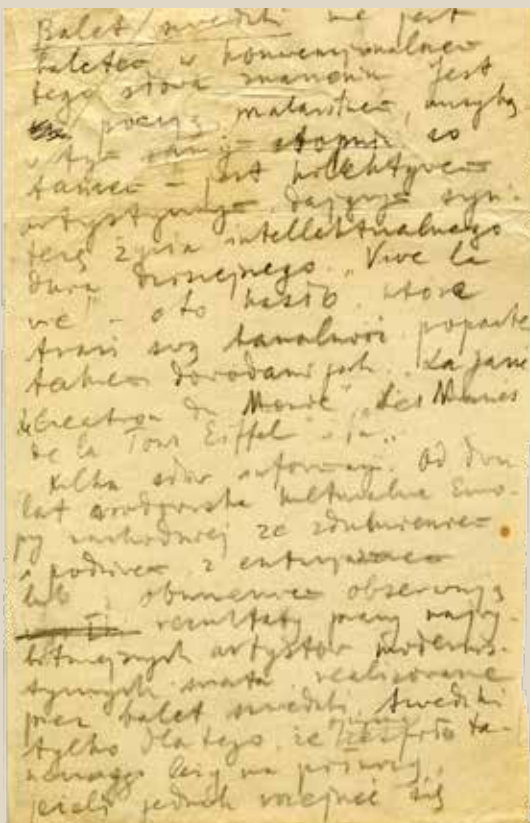 Balet szwedzki nie jest
baletem w konwencjonalnem
tego słowa znaczeniu jest
poezją, malarstwem, muzyką
w tym samym stopniu co
tańcem – jest kolektywem
artystycznym dającym syn-
tezę życia intellektualnego
dnia dzisiejszego. "Vive la
vie" – oto hasło, które
swą banalność poparte
takiem dowodami jak "La
Création du Monde", "Les Mariés
de la Tour Eiffel"
Kilka słów informacji. Od dwu
lat środowiska kulturalne Euro-
py zachodniej ze zdumieniem
i podziwem, z entuzjazmem
lub oburzeniem obserwują
rezultaty pracy najwy-
bitniejszych artystów modernis-
tycznych świata realizowane
przez balet szwedzki. Szwedzki
tylko dlatego, że ta-
necznego leży na północy,
jeżeli jednak się